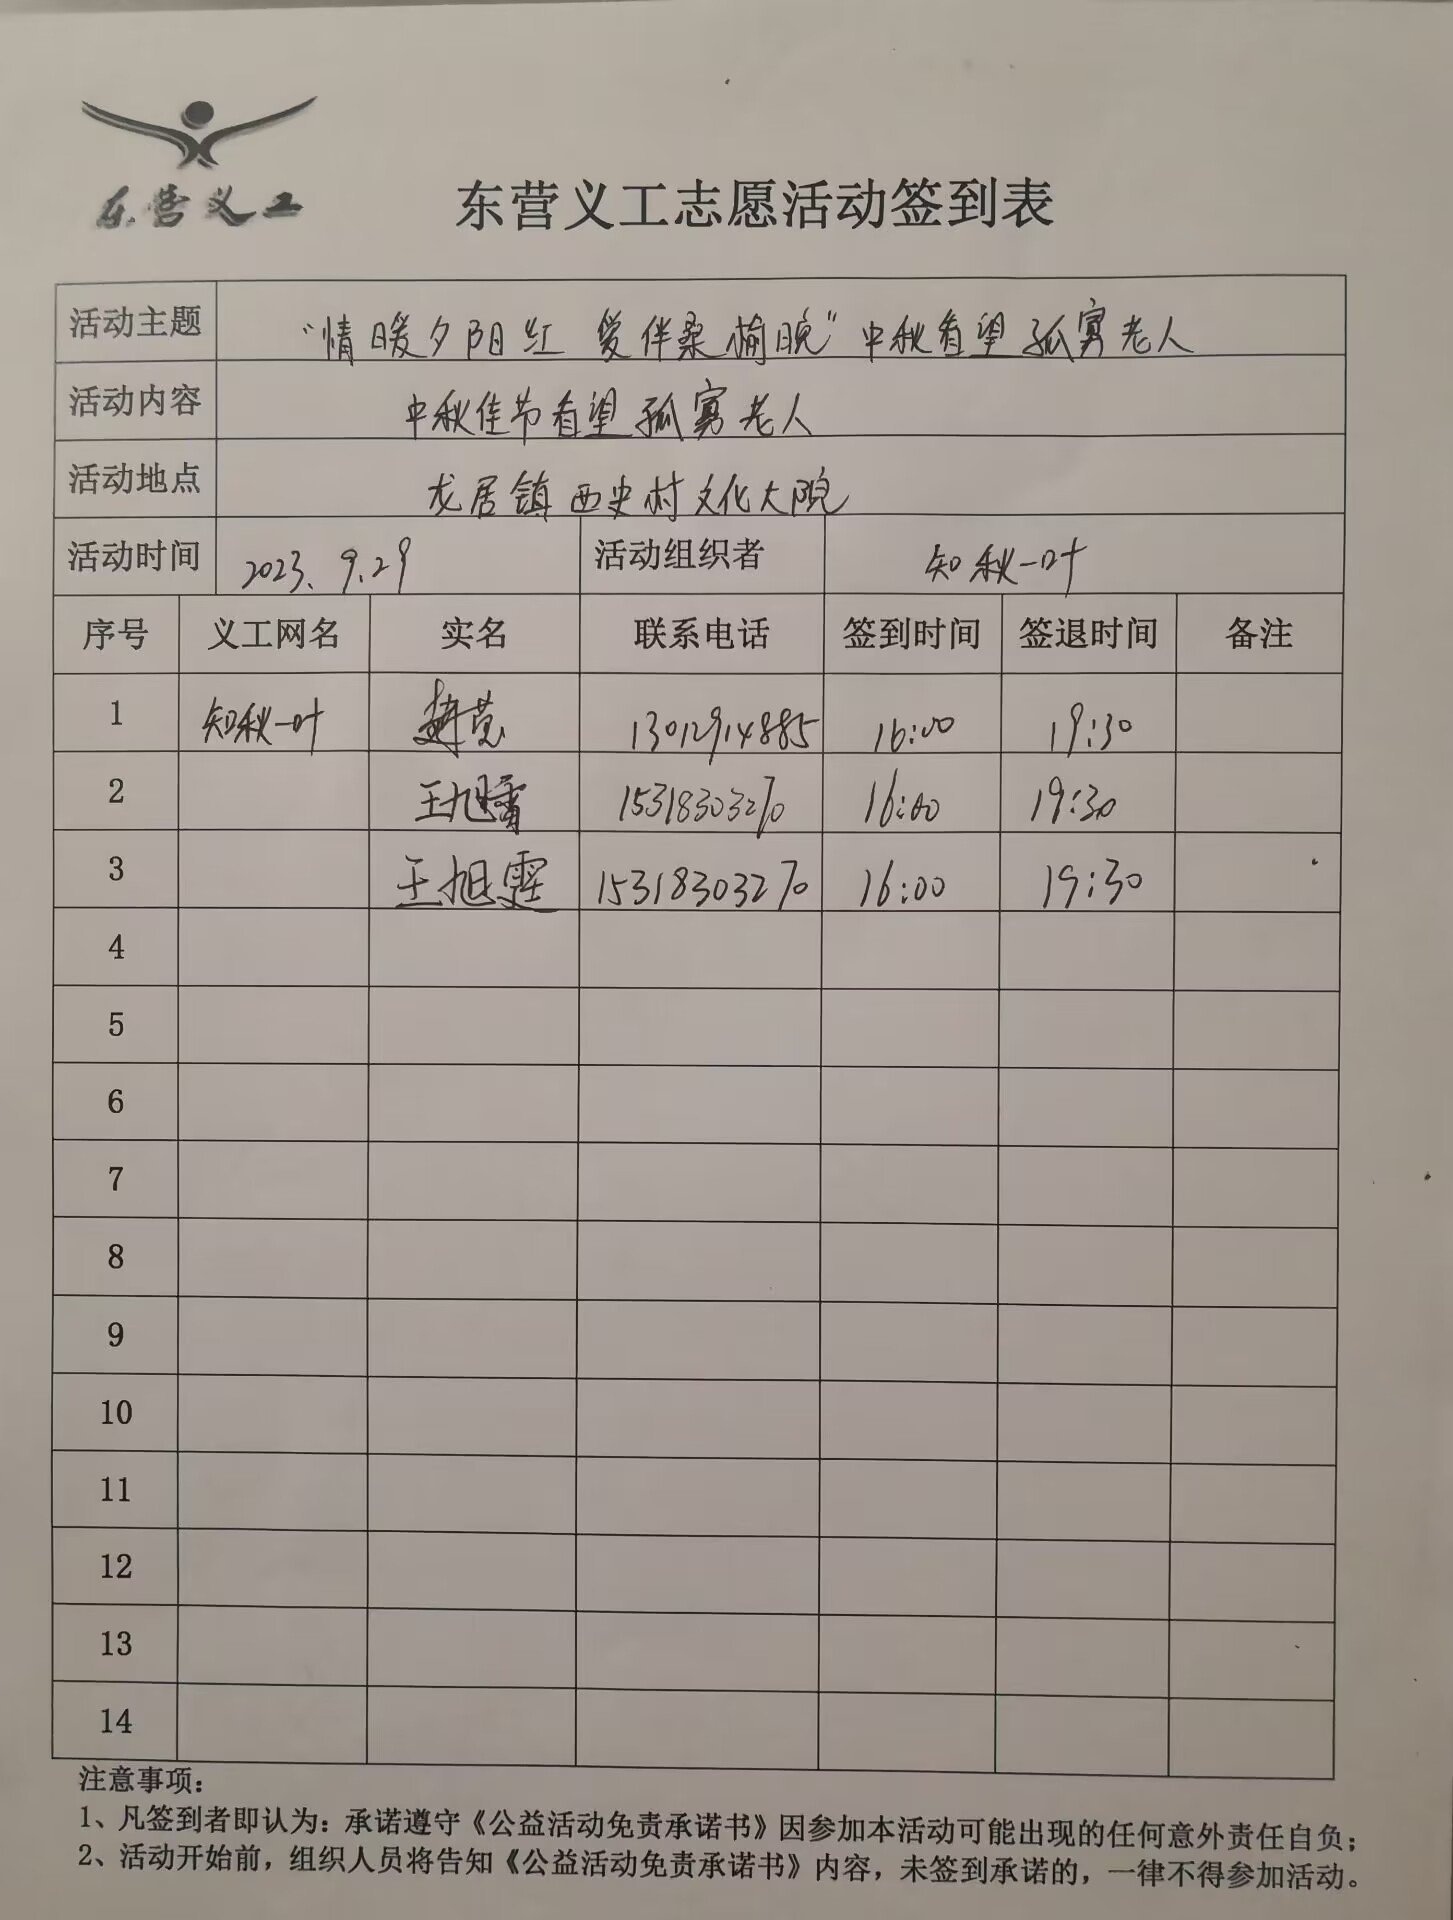 东营义工
东营义工志愿活动签到表
活动主题 “情暖夕阳红 爱伴桑榆晚”中秋看望孤寡老人
活动内容 中秋佳节看望孤寡老人
活动地点 龙居镇西史村文化大院
活动时间 2023.9.29 活动组织者 知秋一叶
序号 义工网名 实名 联系电话 签到时间 签退时间 备注
1 知秋一叶 13012914885 16:00 19:30
2 王旭 15318303270 16:00 19:30
3 王旭霆 15318303270 16:00 19:30
4
5
6
7
8
9
10
11
12
13
14
注意事项：
1、凡签到者即认为：承诺遵守《公益活动免责承诺书》因参加本活动可能出现的任何意外责任自负；
2、活动开始前，组织人员将告知《公益活动免责承诺书》内容，未签到承诺的，一律不得参加活动。